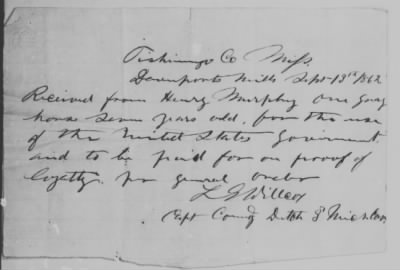 Tishimingo Co Miss.
Davenports Mills Sept 13th 1862
Received from Henry Murphy One Gray
horse Seven years old, for the use
of the United States Goverment
and to be paid for on proof of
loyalty. per general order
L G Willcox
Capt Comdg Detch 3 Mich Cav